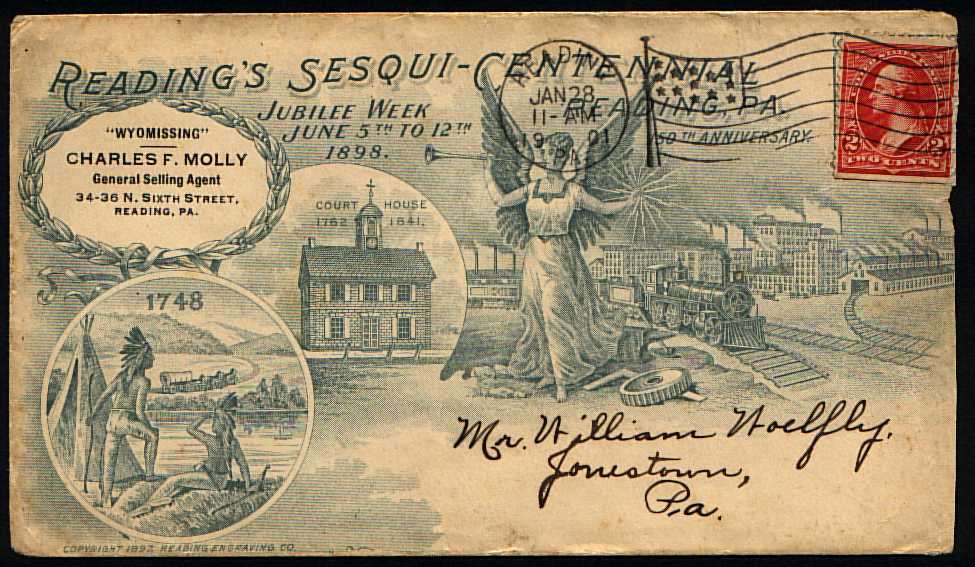 READING'S SESQUI-CENTENNIAL
JUBILEE WEEK
READING, PA.
JUNE 5TH TO 12TH
150TH ANNIVERSARY.
1898.
READING
JAN 28
11-AM
1901
PA.
2 2
TWO CENTS
"WYOMISSING"
CHARLES F. MOLLY
General Selling Agent
34-36 N. SIXTH STREET,
READING, PA.
COURT HOUSE
1762 1841.
1748
Mr. William Woelfly.
Jonestown,
Pa.
COPYRIGHT 1897 READING ENGRAVING CO.